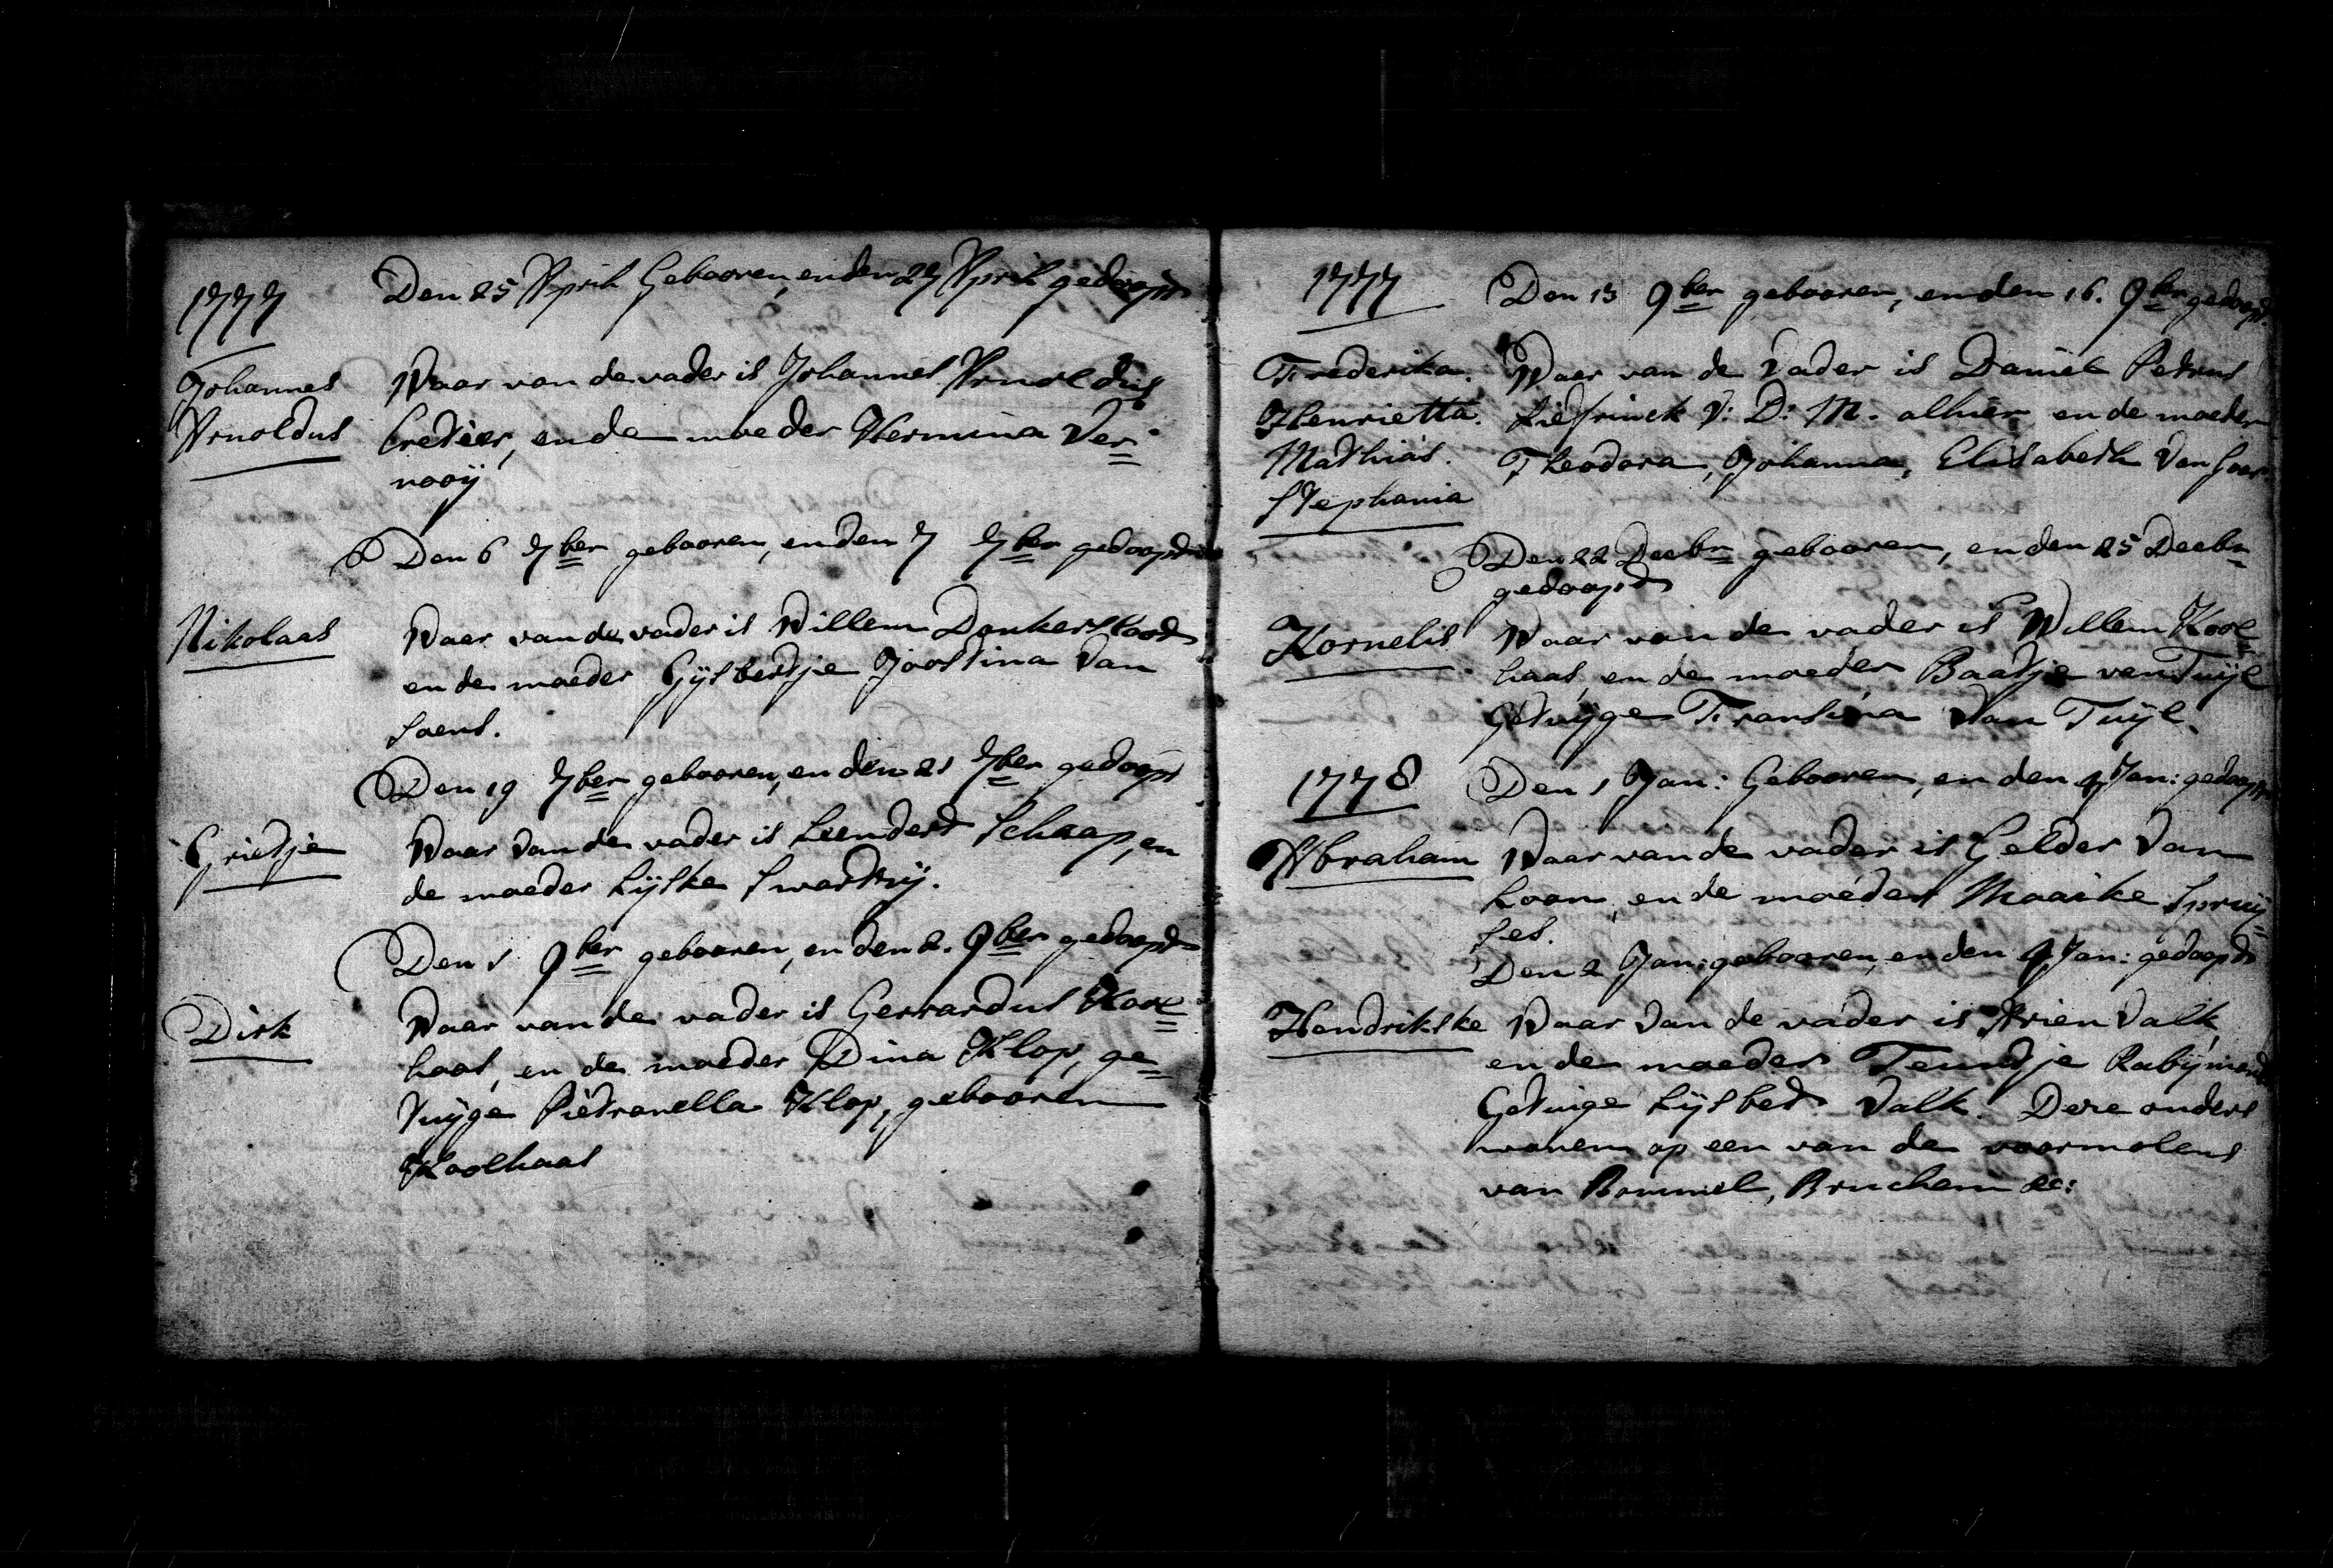 1777
Den 25 April Gebooren, en den 27 April gedoopt
Johannes
Arnoldus
Waar van de vader is Johannes Arnoldus
Cretier, en de moeder Hermina Ver=
nooij
Den 6 7ber gebooren, en den 7 7ber gedoopt
Nikolaas
Waar van de vader is Willem Donkersloot
en de moeder Gijsbertje Joostina Van
Soens.
Den 19 7ber gebooren, en den 21 7ber gedoopt
Grietje
Waar van de vader is Leendert Schaap, en
de moeder Lijske
Den 1 9ber gebooren, en den 2. 9ber gedoopt
Dirk
Waar van de vader is Gerrardus Kool=
haas, en de moeder Dina Klop, ge=
tuijge Piëtronella Klop, gebooren
Koolhaas
1777
Den 13 9ber gebooren, en den 16. 9ber gedoopt.
Frederika.
Henrietta.
Mathias.
Stephania
Waar van de Vader is Daniël Petrus
Liefrinck V: D: M. alhier en de moeder
Theodora, Johanna, Elisabeth Van
Den 22 Decbr gebooren, en den 25 Decbr
gedoopt
Kornelis
Waar van de vader is Willem Kool=
haas, en de moeder Baatje van Tuijl
Getuijge Fransina Van Tuijl.
1778
Den 1 Jan: Gebooren, en den 4 Jan: gedoopt
Abraham
Waar van de vader is Gelder Van
Loon, en de moeder Maaike Spruij=
ses.
Den 2 Jan: gebooren, en den 4 Jan: gedoopt
Hendrikske
Waar van de vader is Arien Valk
en de moeder Teuntje
Getuige Lijsbet Valk. Deze ouders
wonen op een van de voormolens
van Bommel, Bruchem &c: